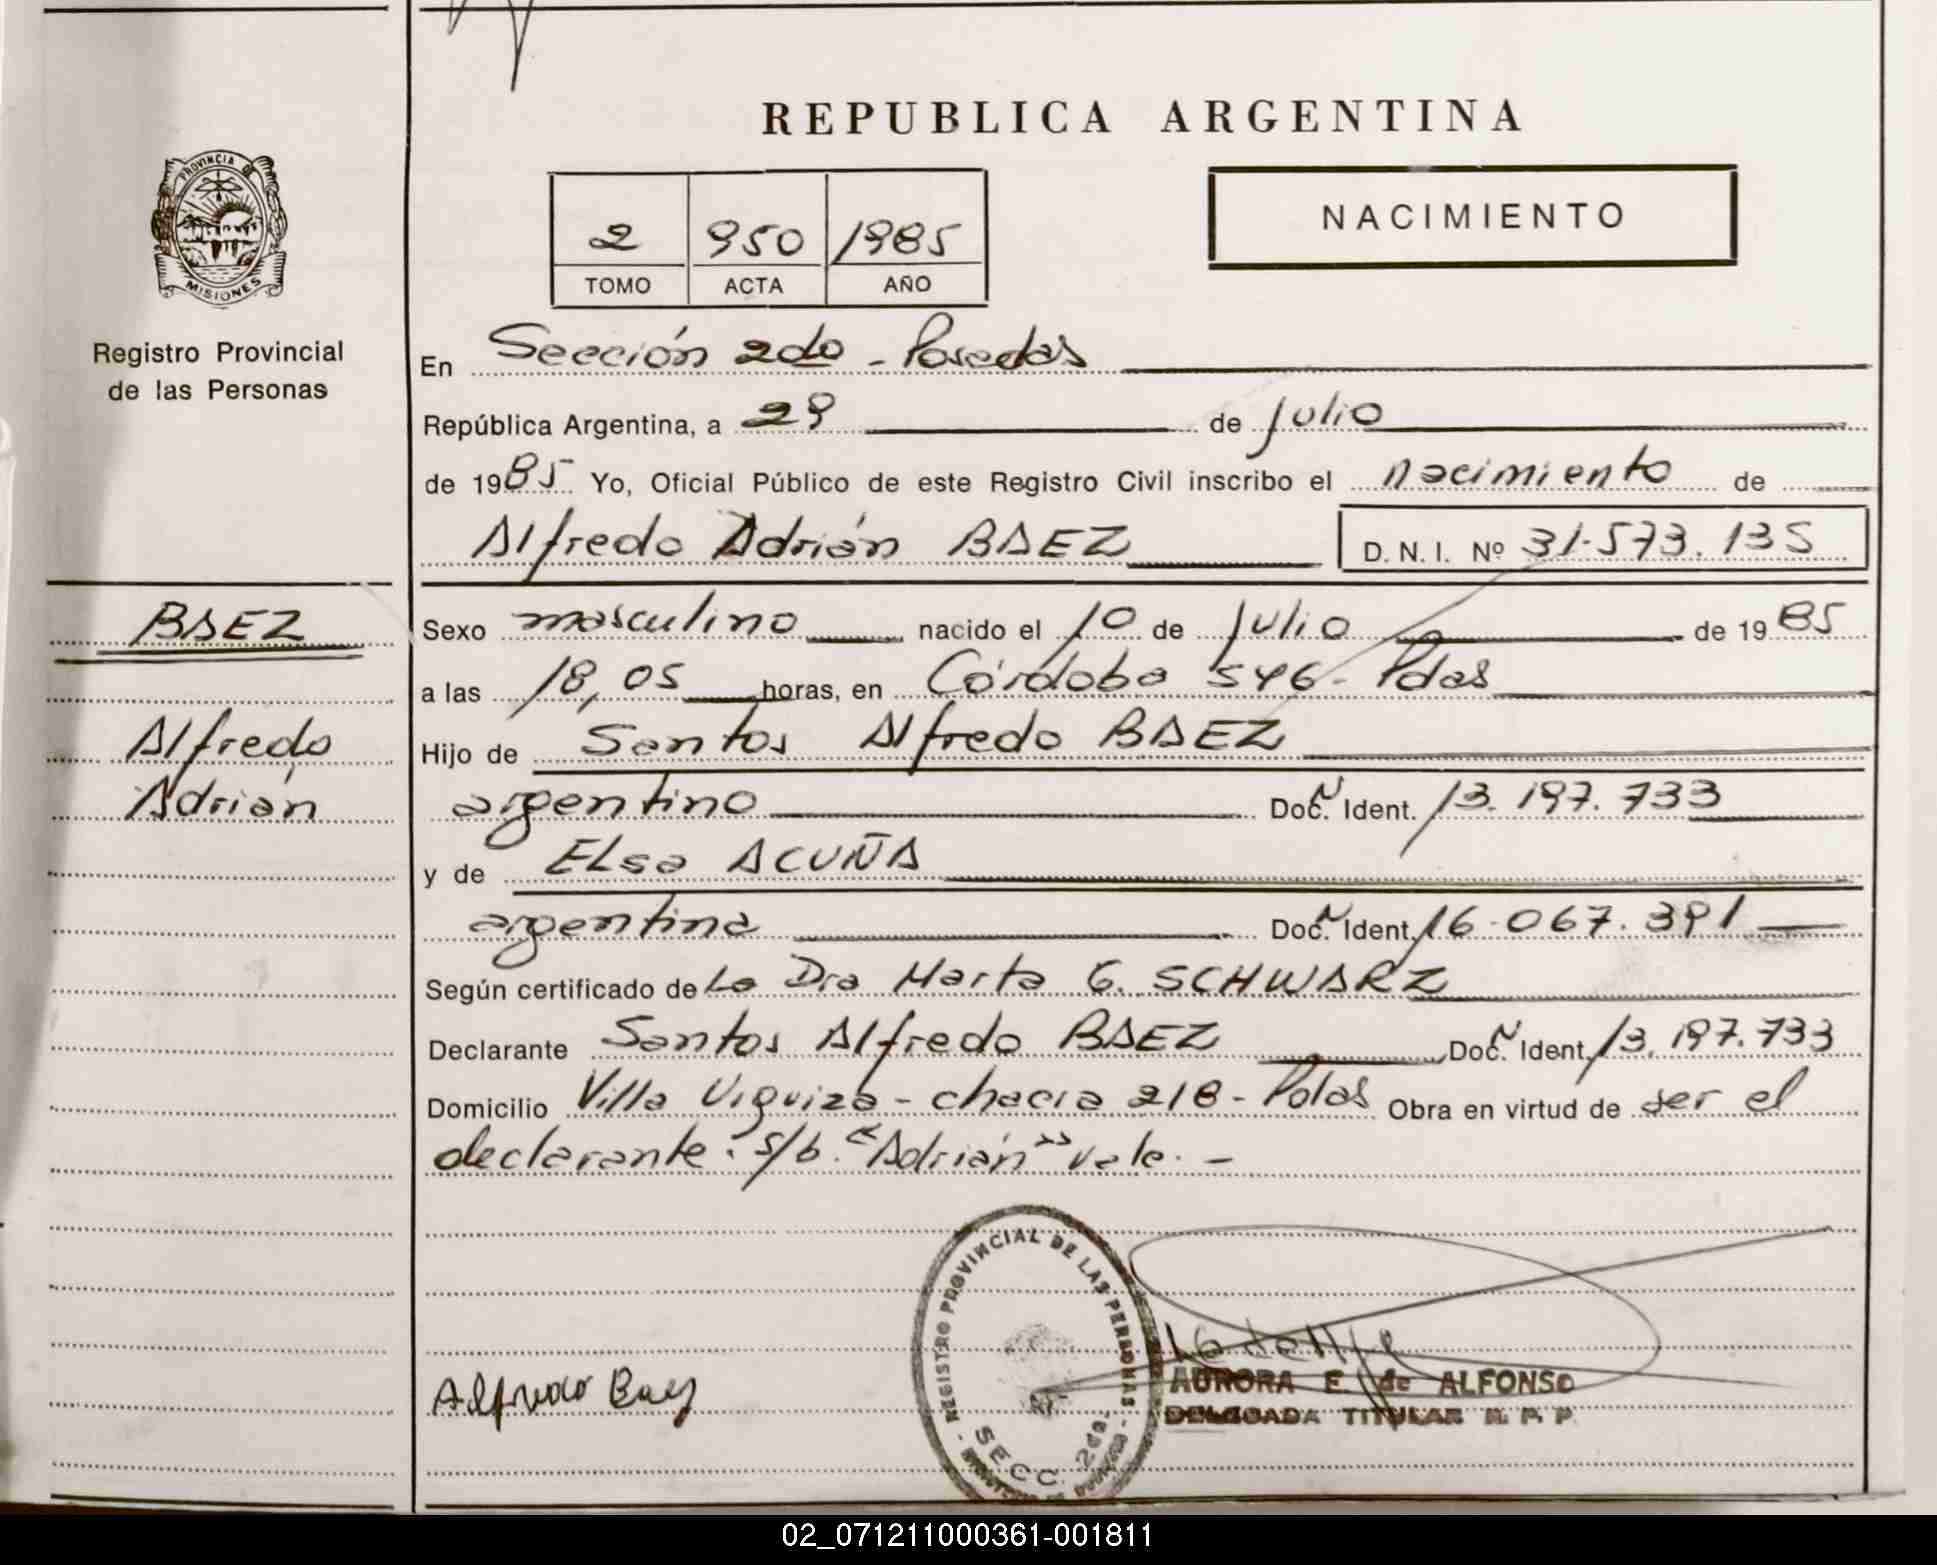 REPUBLICA ARGENTINA
PROVINCIA DE
MISIONES
Registro Provincial
de las Personas
2 950 1985
TOMO ACTA AÑO
NACIMIENTO
En Sección 2do - Posadas
República Argentina, a 29 de julio
de 1985 Yo, Oficial Público de este Registro Civil inscribo el nacimiento de
Alfredo Adrián BAEZ D. N. I. Nº 31.573.135
BAEZ
Alfredo
Adrián
Sexo masculino nacido el 10 de julio de 1985
a las 18,05 horas, en Córdoba 546 - Pdas
Hijo de Santos Alfredo BAEZ
argentino Doc. Ident. 13.197.733
y de ELsa ACUÑA
argentina Doc. Ident. 16.067.391
Según certificado de La Dra Marta G. SCHWARZ
Declarante Santos Alfredo BAEZ Doc. Ident. 13.197.733
Domicilio Villa Urquiza - chacra 218 - Pdas Obra en virtud de ser el
declarante. s/b. "Adrián" vale. -
REGISTRO PROVINCIAL DE LAS PERSONAS
SECC. 2da.
Alfredo Baez
AURORA E. de ALFONSO
DELEGADA TITULAR R. P. P.
02_071211000361-001811